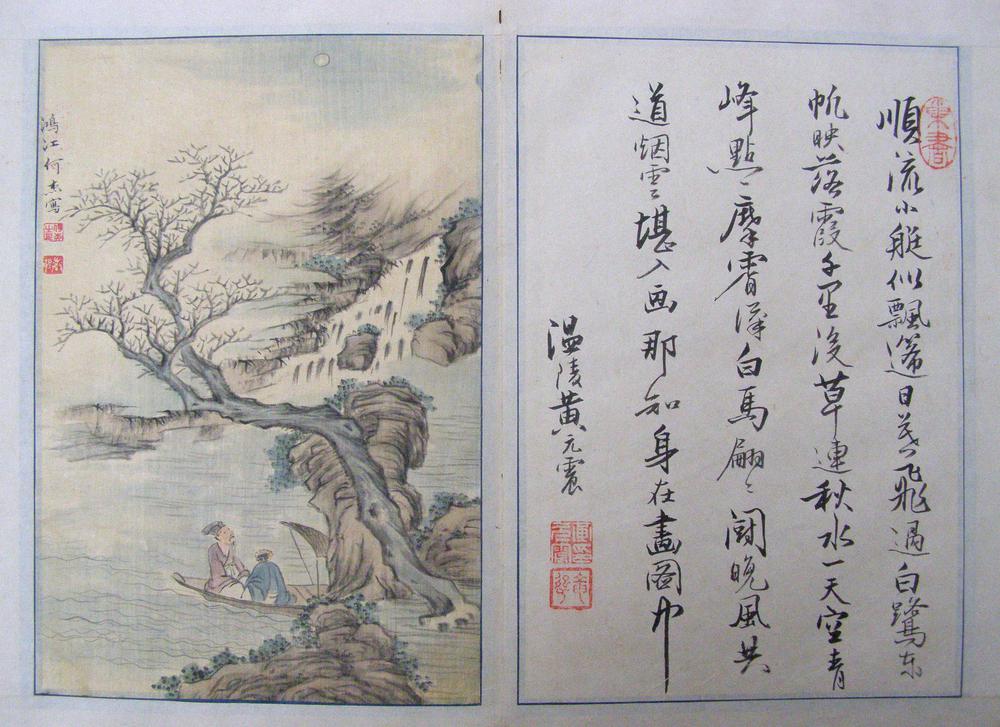 順流小艇似飄蓬日暮飛過白鷺東
帆映落霞千里没草連秋水一天空青
峰點〻摩霄漢白馬翩〻鬪晚風共
道烟雲堪入画那知身在畫圖中
温陵黄元震
鴻江何杰寫